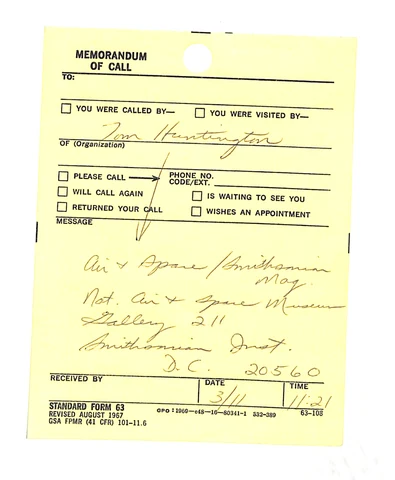 MEMORANDUM
OF CALL
TO:
YOU WERE CALLED BY— YOU WERE VISITED BY—
Tom Huntington
OF (Organization)
PLEASE CALL PHONE NO.
CODE/EXT.
WILL CALL AGAIN IS WAITING TO SEE YOU
RETURNED YOUR CALL WISHES AN APPOINTMENT
MESSAGE
Air & Space / Smithsonian
Mag.
Nat. Air & Space Museum
Gallery 211
Smithsonian Inst.
D.C. 20560
RECEIVED BY DATE TIME
3/11 11:21
STANDARD FORM 63
REVISED AUGUST 1967
GSA FPMR (41 CFR) 101-11.6
GPO : 1969—c48—16—80341-1 332-389 63-108